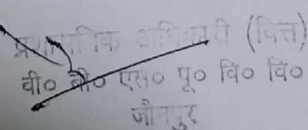 प्रशासनिक अधिकारी (वित्त)
वी० ब० एस० पू० वि० वि०
जौनपुर